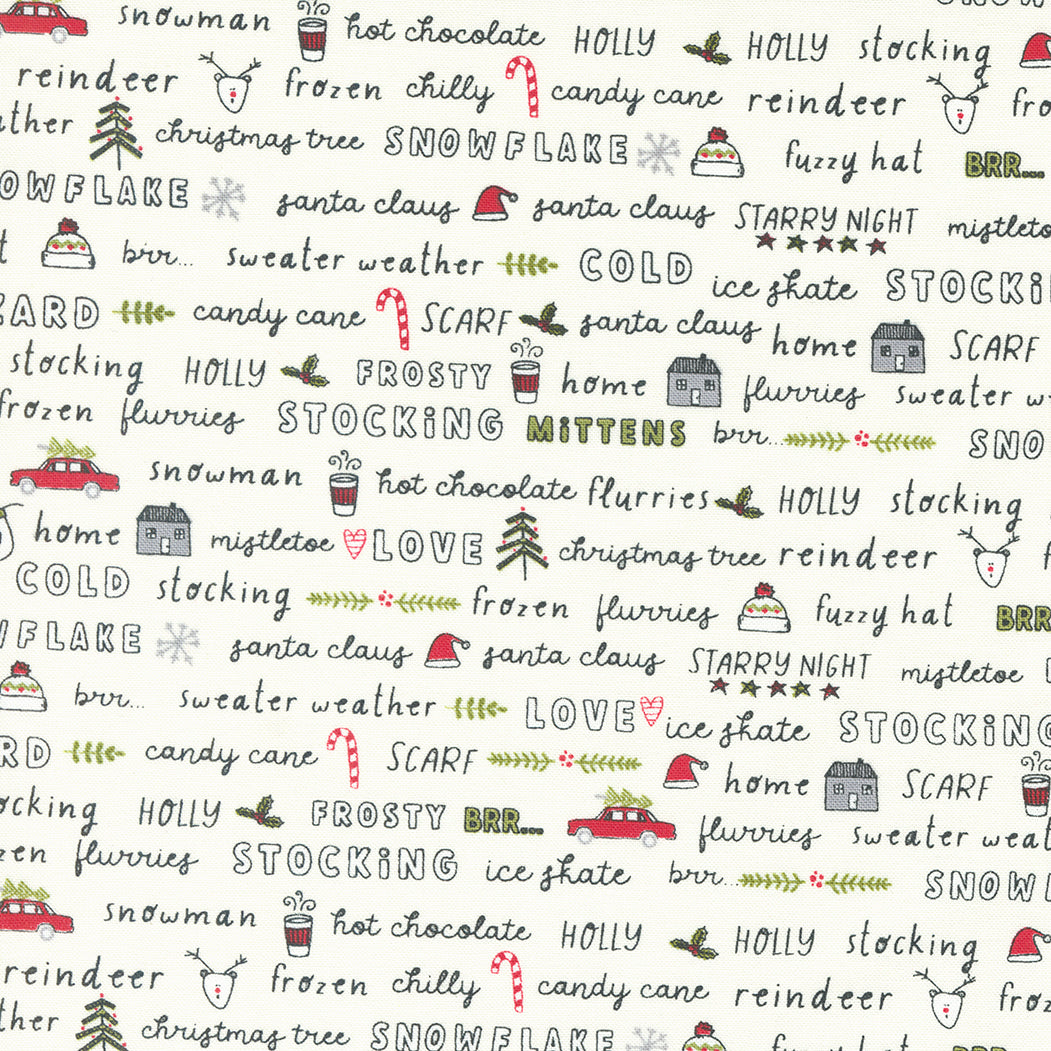 snowman hot chocolate HOLLY HOLLY stocking
reindeer frozen chilly candy cane reindeer
christmas tree SNOWFLAKE fuzzy hat BRR...
santa claus santa claus STARRY NIGHT
brr... sweater weather COLD ice skate
candy cane SCARF santa claus home SCARF
stocking HOLLY FROSTY home flurries sweater
frozen flurries STOCKiNG MiTTENS brr...
snowman hot chocolate flurries HOLLY stocking
home mistletoe LOVE christmas tree reindeer
COLD stocking frozen flurries fuzzy hat
santa claus santa claus STARRY NIGHT mistletoe
brr... sweater weather LOVE ice skate STOCKiNG
candy cane SCARF home SCARF
HOLLY FROSTY BRR... flurries sweater
flurries STOCKiNG ice skate brr...
snowman hot chocolate HOLLY HOLLY stocking
reindeer frozen chilly candy cane reindeer
christmas tree SNOWFLAKE